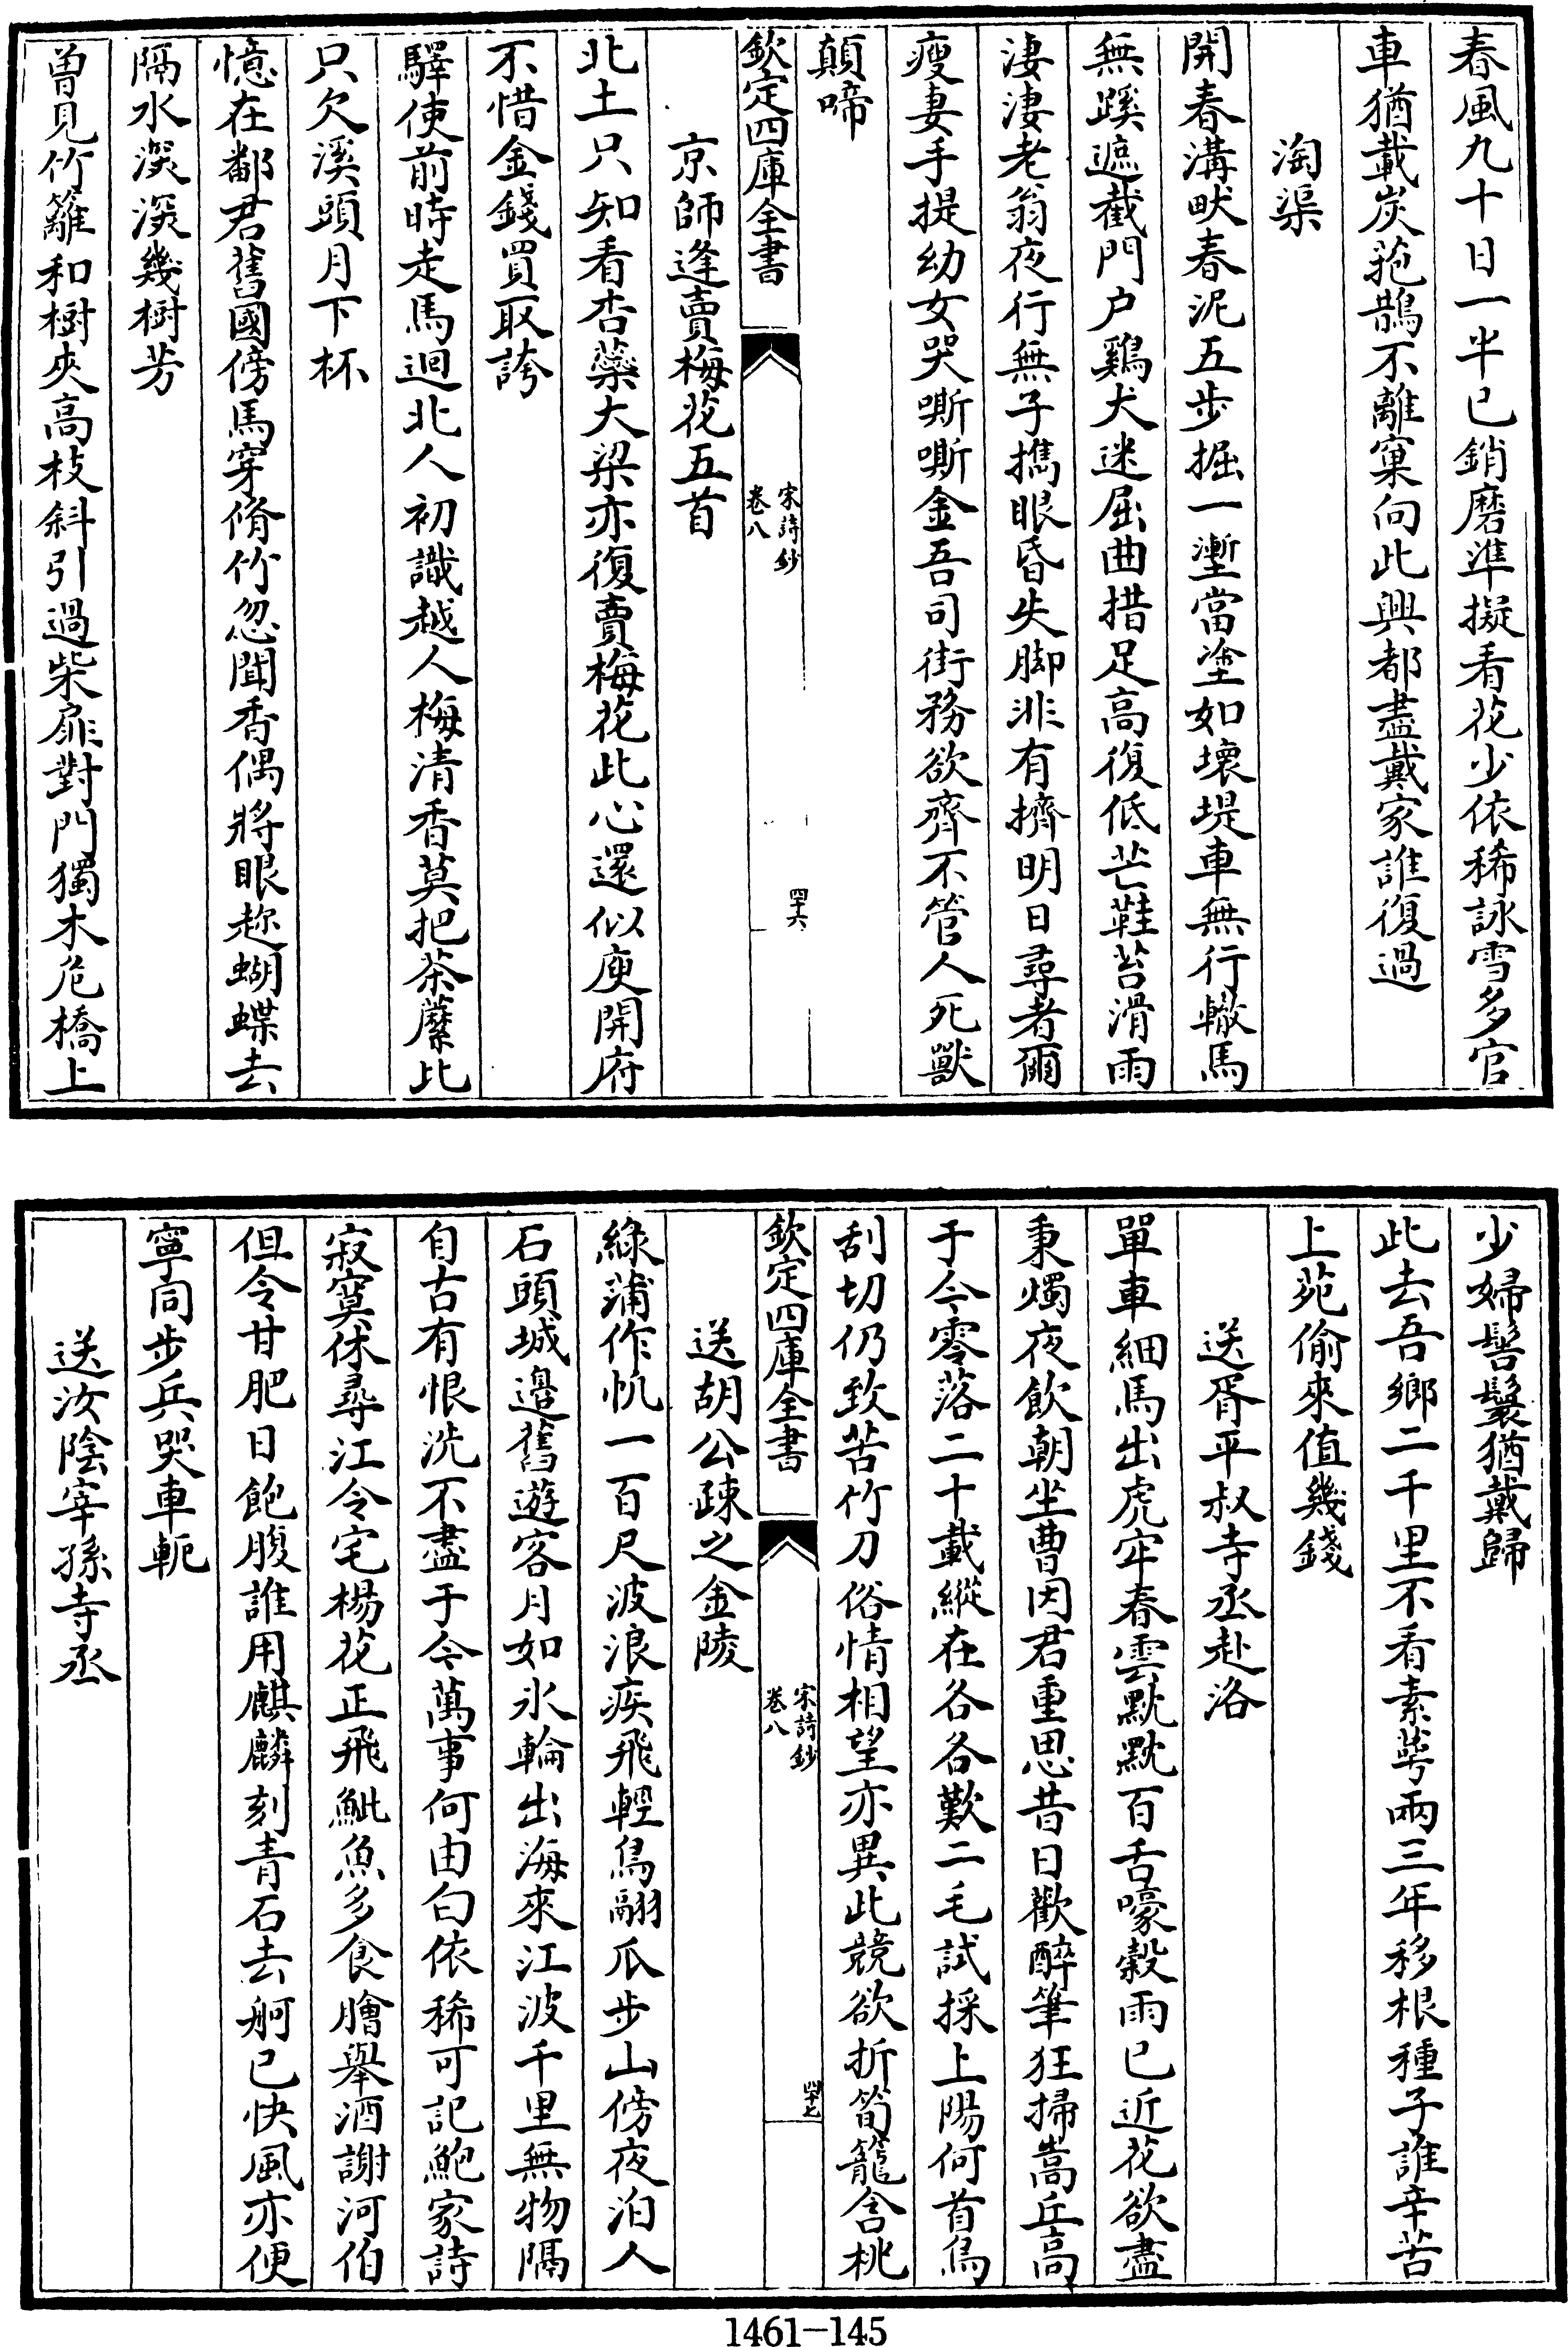 春風九十日一半已銷磨準擬看花少依稀詠雪多官
車猶載炭菢鵲不離窠向此興都盡戴家誰復過
淘渠
開春溝畎春泥五步掘一塹當塗如壞堤車無行轍馬
無蹊遮截門户鷄犬迷屈曲措足高復低芒鞋苔滑雨
淒淒老翁夜行無子擕眼昏失脚非有擠明日尋者爾
瘦妻手提幼女哭嘶嘶金吾司街務欲齊不管人死獸
顛啼
欽定四庫全書
宋詩鈔
卷八
四十六
京師逢賣梅花五首
北土只知看杏蘂大梁亦復賣梅花此心還似庾開府
不惜金錢買取誇
驛使前時走馬迴北人初識越人梅清香莫把荼蘼比
只欠溪頭月下杯
憶在鄱君舊國傍馬穿脩竹忽聞香偶將眼趂蝴蝶去
隔水深深幾樹芳
曽見竹籬和樹夾高枝斜引過柴扉對門獨木危橋上
少婦髻鬟猶戴歸
此去吾鄉二千里不看素萼兩三年移根種子誰辛苦
上苑偷來值幾錢
送胥平叔寺丞赴洛
單車細馬出虎牢春雲黙黙百舌嚎榖雨已近花欲盡
秉燭夜飲朝坐曹因君重思昔日歡醉筆狂掃嵩丘高
于今零落二十載縱在各各歎二毛試採上陽何首烏
刮切仍致苦竹刀俗情相望亦異此競欲折筍籠含桃
欽定四庫全書
宋詩鈔
卷八
四十七
送胡公疎之金陵
綠蒲作帆一百尺波浪疾飛輕鳥翮瓜步山傍夜泊人
石頭城邉舊遊客月如氷輪出海來江波千里無物隔
自古有恨洗不盡于今萬事何由白依稀可記鮑家詩
寂寞休尋江令宅楊花正飛魮魚多食膾舉酒謝河伯
但令甘肥日飽腹誰用麒麟刻青石去舸已快風亦便
寧同步兵哭車軛
送汝陰宰孫寺丞
1461-145